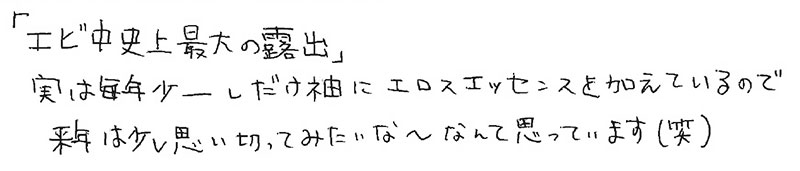 「エビ中史上最大の露出」
実は毎年少ーしだけ袖にエロスエッセンスを加えているので
来年は少し思い切ってみたいな〜なんて思っています(笑)